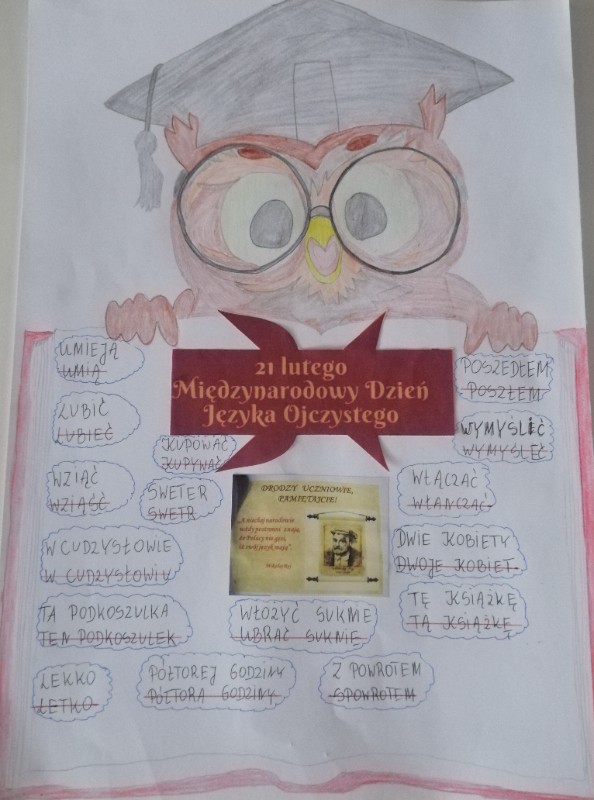 21 lutego
Międzynarodowy Dzień
Języka Ojczystego
UMIEJĄ
UMIĄ
LUBIĆ
LUBIEĆ
KUPOWAĆ
KUPYWAĆ
WZIĄĆ
WZIĄŚĆ
SWETER
SWETR
W CUDZYSŁOWIE
W CUDZYSŁOWIU
TA PODKOSZULKA
TEN PODKOSZULEK
LEKKO
LETKO
PÓŁTOREJ GODZINY
PÓŁTORA GODZINY
WŁOŻYĆ SUKNIE
UBRAĆ SUKNIE
Z POWROTEM
SPOWROTEM
POSZEDŁEM
POSZŁEM
WYMYŚLIĆ
WYMYŚLEĆ
WŁĄCZAĆ
WŁANCZAĆ
DWIE KOBIETY
DWOJE KOBIET
TĘ KSIĄŻKĘ
TĄ KSIĄŻKĘ
DRODZY UCZNIOWIE,
PAMIĘTAJCIE!
„A niechaj narodowie
wżdy postronni znają,
iż Polacy nie gęsi,
iż swój język mają”.
Mikołaj Rej